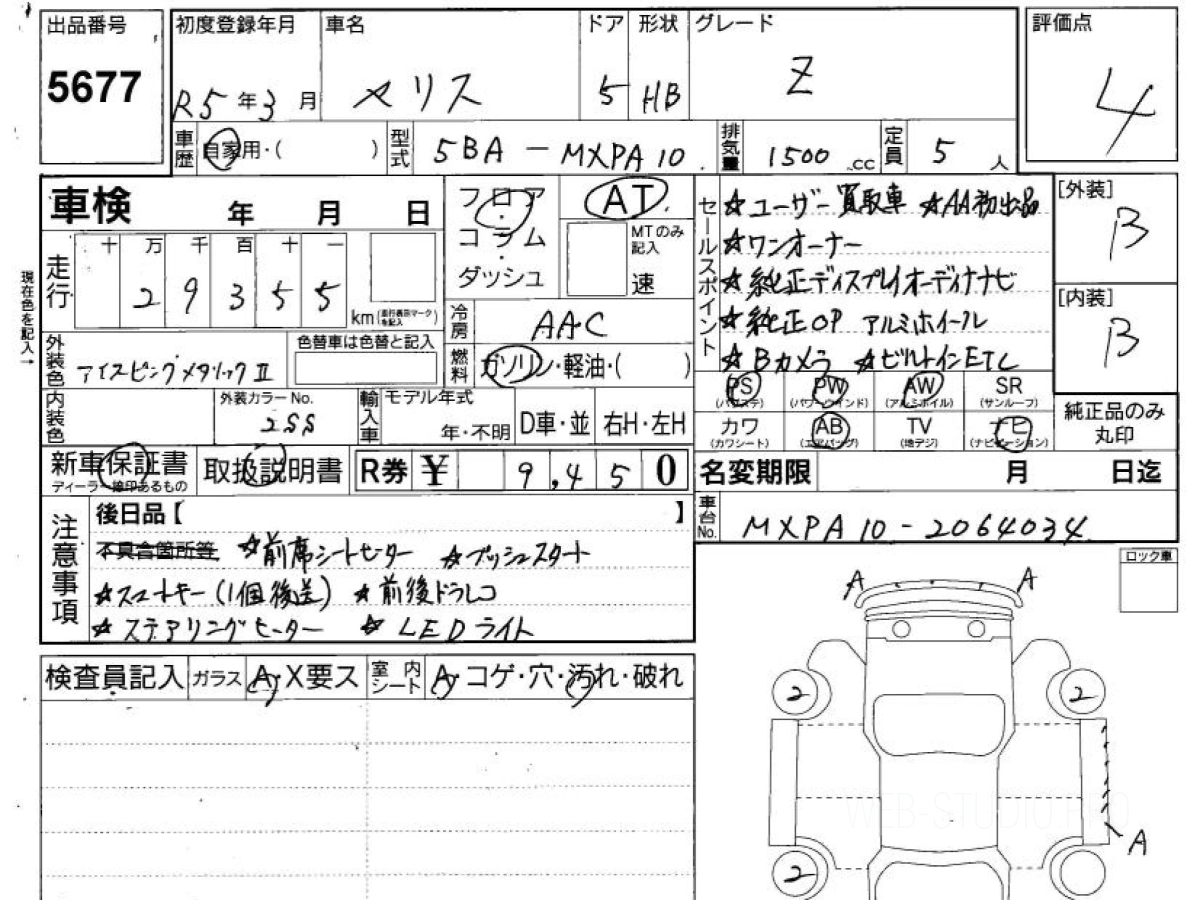 出品番号
5677
初度登録年月
R5年3月
車名
ヤリス
ドア
5
形状
HB
グレード
Z
評価点
4
車歴
自家用・( )
型式
5BA-MXPA10
排気量
1500 cc
定員
5人
車検 年 月 日
走行
十 万 千 百 十 一
2 9 3 5 5
km(走行表示マークを記入)
現在色を記入→
外装色
アイスピンクメタリックⅡ
色替車は色替と記入
内装色
外装カラーNo.
2SS
フロア・コラム・ダッシュ
AT
MTのみ記入
速
冷房
AAC
燃料
ガソリン・軽油・( )
輸入車
モデル年式
年・不明
D車・並
右H・左H
セールスポイント
☆ユーザー買取車 ☆AA初出品
☆ワンオーナー
☆純正ディスプレイオーディオナビ
☆純正OP アルミホイール
☆Bカメラ ☆ビルトインETC
[外装]
B
[内装]
B
PS
(パワステ)
PW
(パワーウインド)
AW
(アルミホイル)
SR
(サンルーフ)
カワ
(カワシート)
AB
(エアバッグ)
TV
(地デジ)
ナビ
(ナビゲーション)
純正品のみ
丸印
新車保証書
ディーラー捺印あるもの
取扱説明書
R券 ¥ 9,450
名変期限 月 日迄
車台No.
MXPA10-2064034
注意事項
後日品【 】
不具合箇所等 ☆前席シートヒーター ☆プッシュスタート
☆スマートキー(1個後差) ☆前後ドラレコ
☆ステアリングヒーター ☆LEDライト
ロック車
検査員記入
ガラス
A・X要ス
室内シート
A・コゲ・穴・汚れ・破れ
A A
2 2
A
2
WEB-STUDIO.PRO